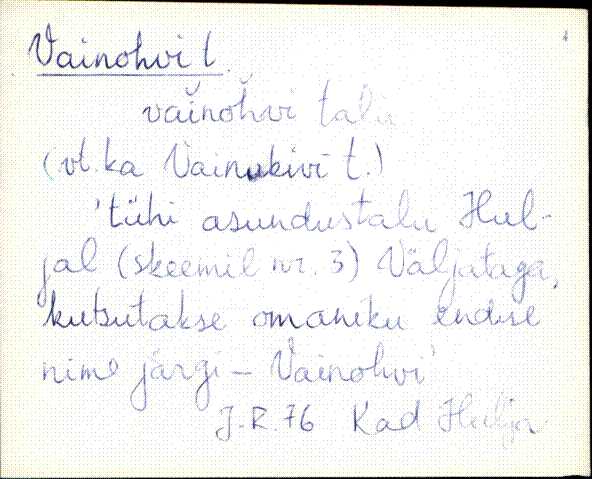 Vainohvi t.
vaĭnoh̆vi talu
(vt. ka Vainukivi t.)
'tühi asundustalu Hul-
jal (skeemil nr. 3) Väljataga,
kutsutakse omaniku endise
nime järgi – Vainohvi'
J.R. 76 Kad Hulja